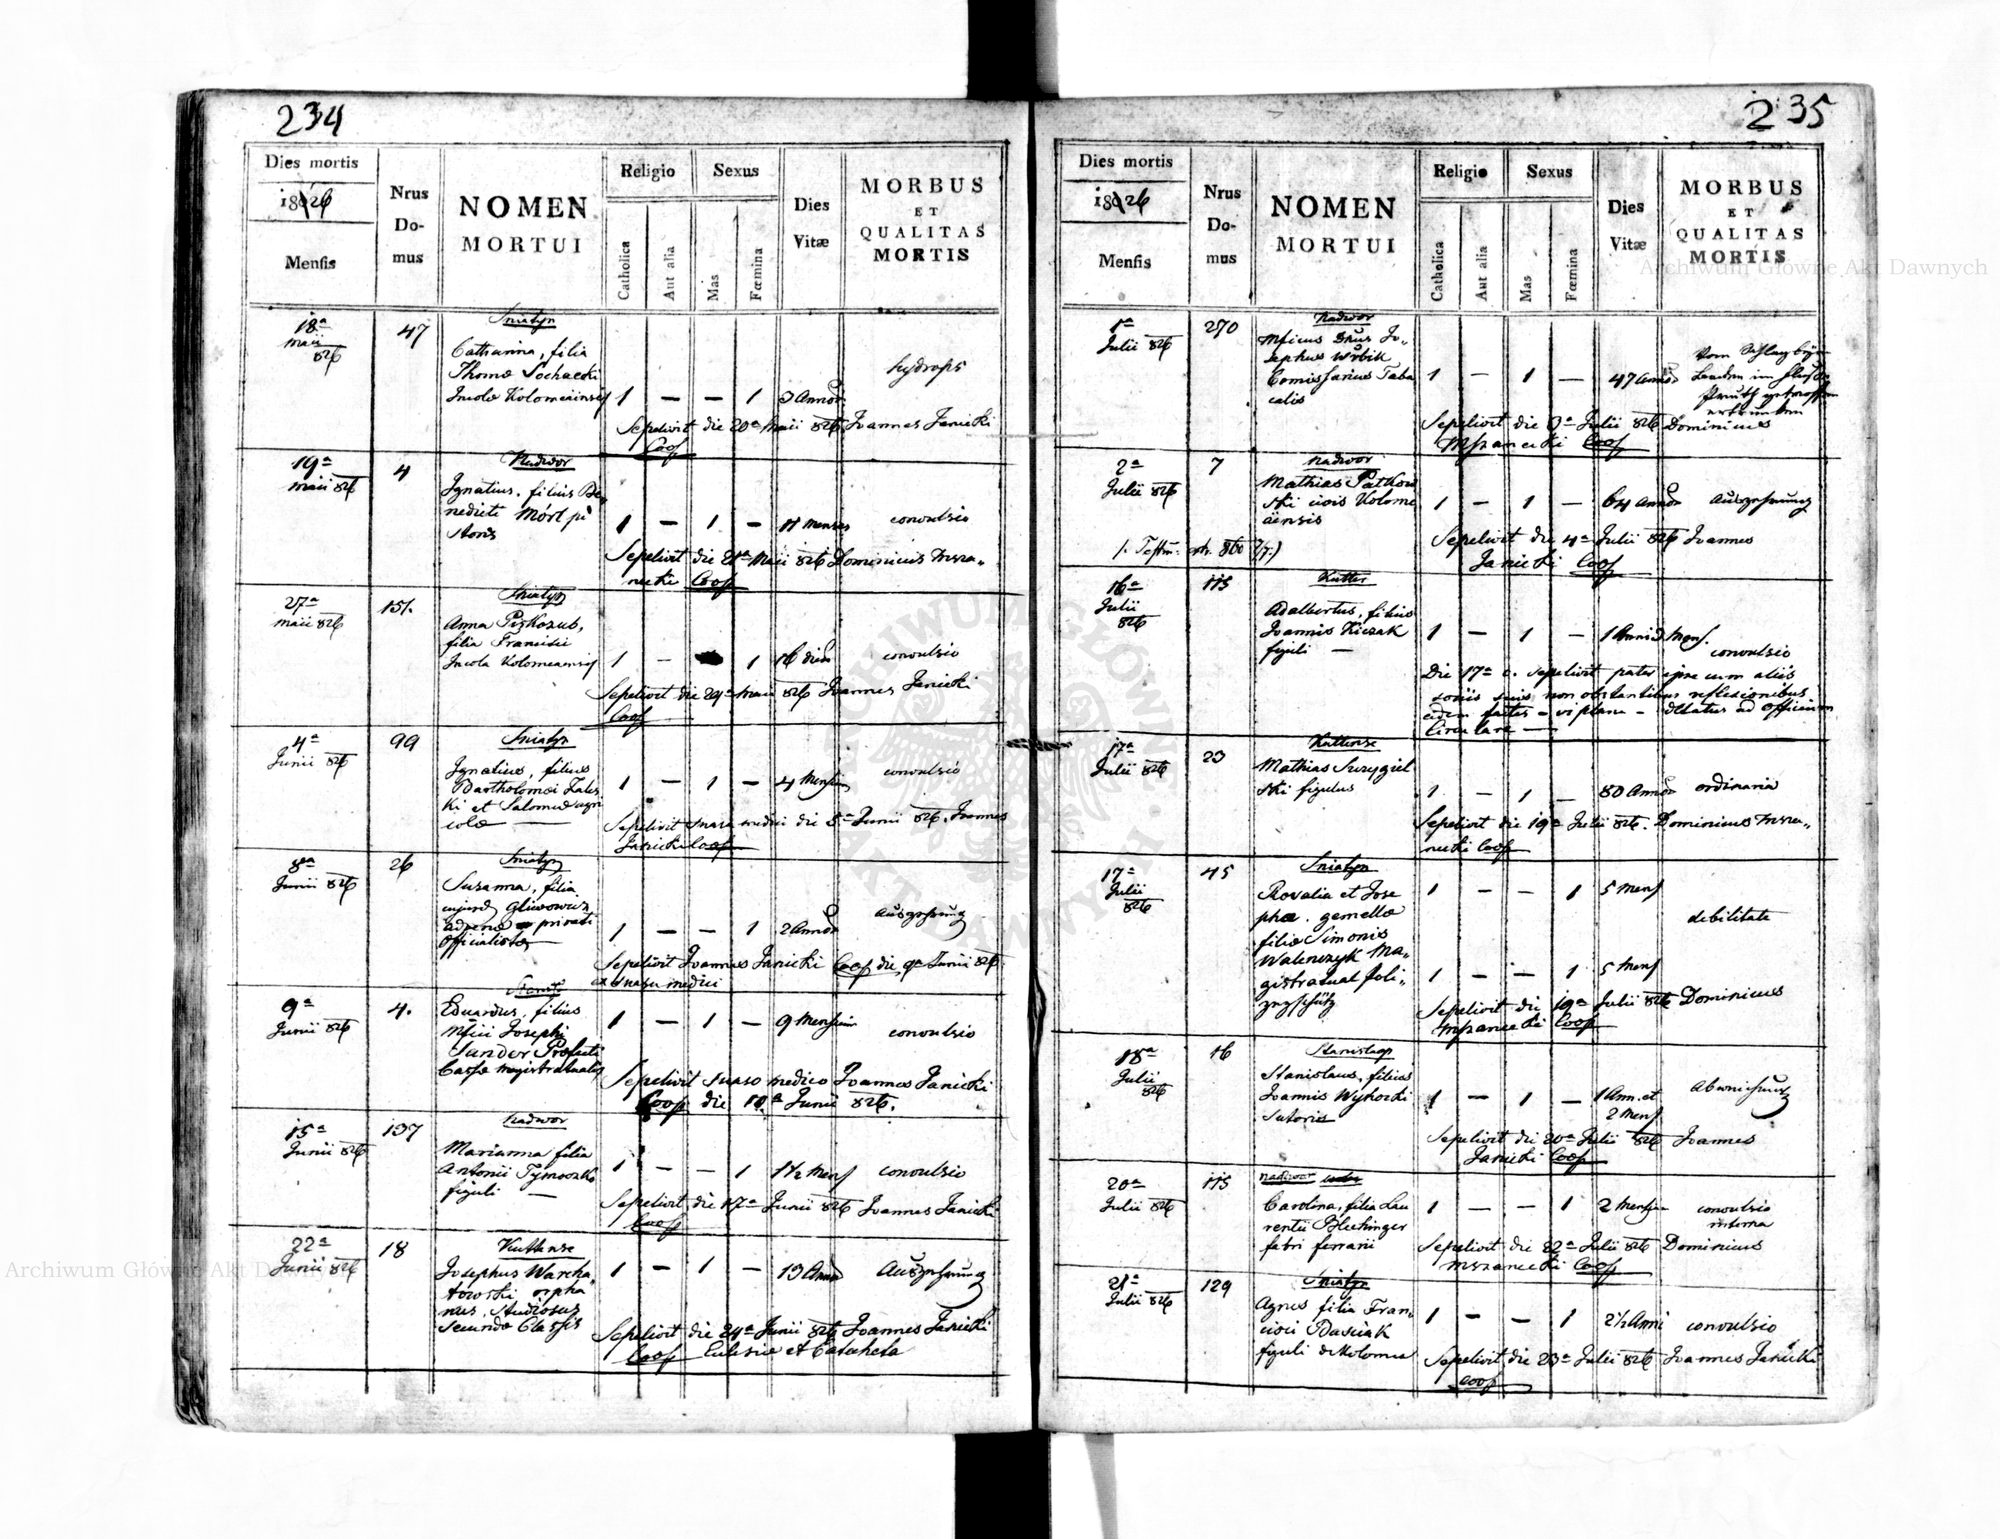 234
Dies mortis
1826
Mensis
Nrus
Do-
mus
NOMEN
MORTUI
Religio
Catholica
Aut alia
Sexus
Mas
Fœmina
Dies
Vitæ
MORBUS
ET
QUALITAS
MORTIS
18a
Maii
826
47
Sniatyn
Catharina, filia
Thomæ Sochacki
Incolæ Kolomeiensis
1 — — 1
3 Annor.
hydrops
Sepelivit die 20a Maii 826 Joannes Janicki
Coop
19a
Maii 826
4
Nadwor
Ignatius, filius Be-
nedicti Mörl pi
storis
1 — 1 —
11 Menses
convulsio
Sepelivit die 21a Maii 826 Dominicus Msza-
necki Coop
27a
Maii 826
151.
Sniatyn
Anna Piskozub,
filia Francisci
Incola Kolomeensis
1 — 1
16 dies
convulsio
Sepelivit die 29a Maii 826 Joannes Janicki
Coop
4a
Junii 826
99
Sniatyn
Ignatius, filius
Bartholomei Zales
ki et Salomeæ agri
colæ —
1 — 1 —
4 Mensium
convulsio
Sepelivit suasu medici die 5a Junii 826. Joannes
Janicki Coop
8va
Junii 826
26
Sniatyn
Susanna, filia
cujusd Gliwowicz
advenæ privati
officialistæ
1 — — 1
2 Annor
Auszehrung
Sepelivit Joannes Janicki Coop die 9a Junii 826
ex suasu medici
9a
Junii 826
4.
Eduardus, filius
Mfici Josephi
Sander Præfecti
Cassæ magistratualis
1 — 1 —
9 Mensium
convulsio
Sepelivit suaso medico Joannes Janicki
Coop die 10a Junii 826.
15a
Junii 826
137
Nadwor
Marianna filia
Antonii Tymoczko
figuli —
1 — — 1
1½ Mens
convulsio
Sepelivit die 17a Junii 826 Joannes Janicki
Coop
22a
Junii 826
18
Kuttense
Josephus Warcha
towski orpha
nus. Studiosus
secundæ Classis
1 — 1 —
13 Annor
Auszehrung
Sepelivit die 24a Junii 826 Joannes Janicki
Coop Ecclesiæ et Catecheta
235
Dies mortis
1826
Mensis
Nrus
Do-
mus
NOMEN
MORTUI
Religio
Catholica
Aut alia
Sexus
Mas
Fœmina
Dies
Vitæ
MORBUS
ET
QUALITAS
MORTIS
1a
Julii 826
270
Nadwor
Mficus Dnus Jo-
sephus Wrbik
Comissarius Taba
calis
1 — 1 —
47 Annor
Vom Schlag beym
Baaden im Fluss
Pruth getroffen
ertrunken
Sepelivit die 3a Julii 826 Dominicus
Mszanecki Coop
2a
Julii 826
7
Nadwor
Mathias Patkow
ski civis Kolome
äensis
1 — 1 —
64 Annor
Auszehrung
Sepelivit die 4a Julii 826 Joannes
Janicki Coop
16a
Julii
826
115
Kutter
Adalbertus, filius
Joannis Kiczak
figuli —
1 — 1 —
1 Anni 3 Mens.
convulsio
Die 17a c. sepelivit pater ipse cum aliis
sociis suis non obstantibus reflexionibus
eidem factis — vi plana — delatus ad officium
Circulare —
17a
Julii 826
23
Kuttense
Mathias Surzygiel
ski figulus
1 — 1 —
80 Annor
ordinaria
Sepelivit die 19a Julii 826. Dominicus Msza-
necki Coop
17a
Julii
826
45
Sniatyn
Rosalia et Jose
pha. gemellæ
filiæ Simonis
Walenczyk Ma-
gistratual Poli-
zeyschütz
1 — — 1
5 Mens
debilitate
1 — — 1
5 Mens
Sepelivit die 19a Julii 826 Dominicus
Mszanecki Coop
18a
Julii
826
16
Stanislaus, filius
Joannis Wysocki
Sutoris
1 — 1 —
1 Ann. et
2 Mens
Abweichung
Sepelivit die 20a Julii 826 Joannes
Janicki Coop
20a
Julii 826
115
Carolina, filia Lau
rentii Blechinger
fabri ferrarii
1 — — 1
2 Mensium
convulsio
interna
Sepelivit die 22a Julii 826 Dominicus
Mszanecki Coop
21a
Julii 826
129
Sniatyn
Agnes filia Fran-
cisci Basiak
figuli de Kolomea
1 — — 1
2½ Anni
convulsio
Sepelivit die 23a Julii 826 Joannes Janicki
Coop
Archiwum Główne Akt Dawnych
Archiwum Główne Akt Dawnych
ARCHIWUM GŁÓWNE AKT DAWNYCH